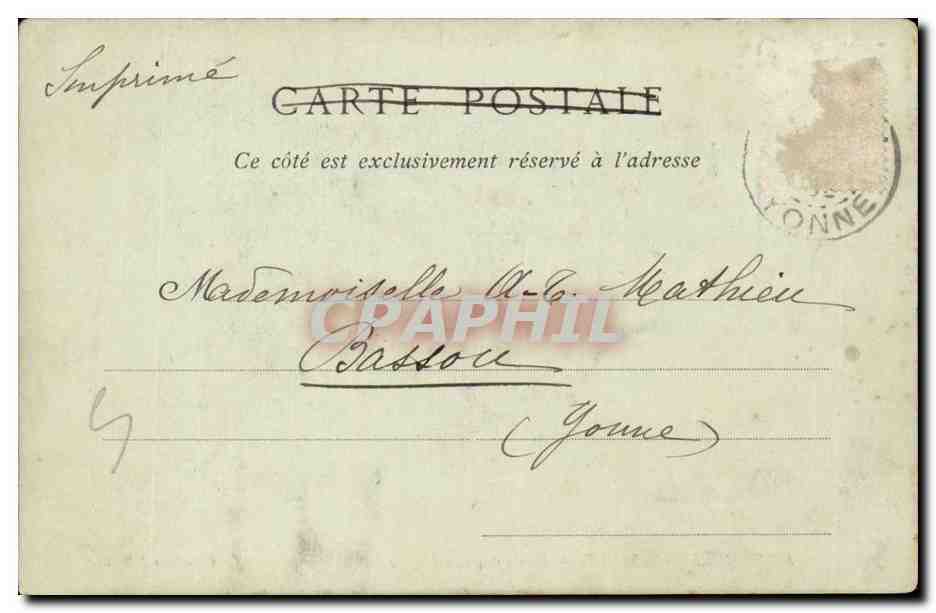 Imprimé
CARTE POSTALE
Ce côté est exclusivement réservé à l'adresse
YONNE
Mademoiselle A-T. Mathieu
CPAPHIL
Bassou
(Yonne)
5